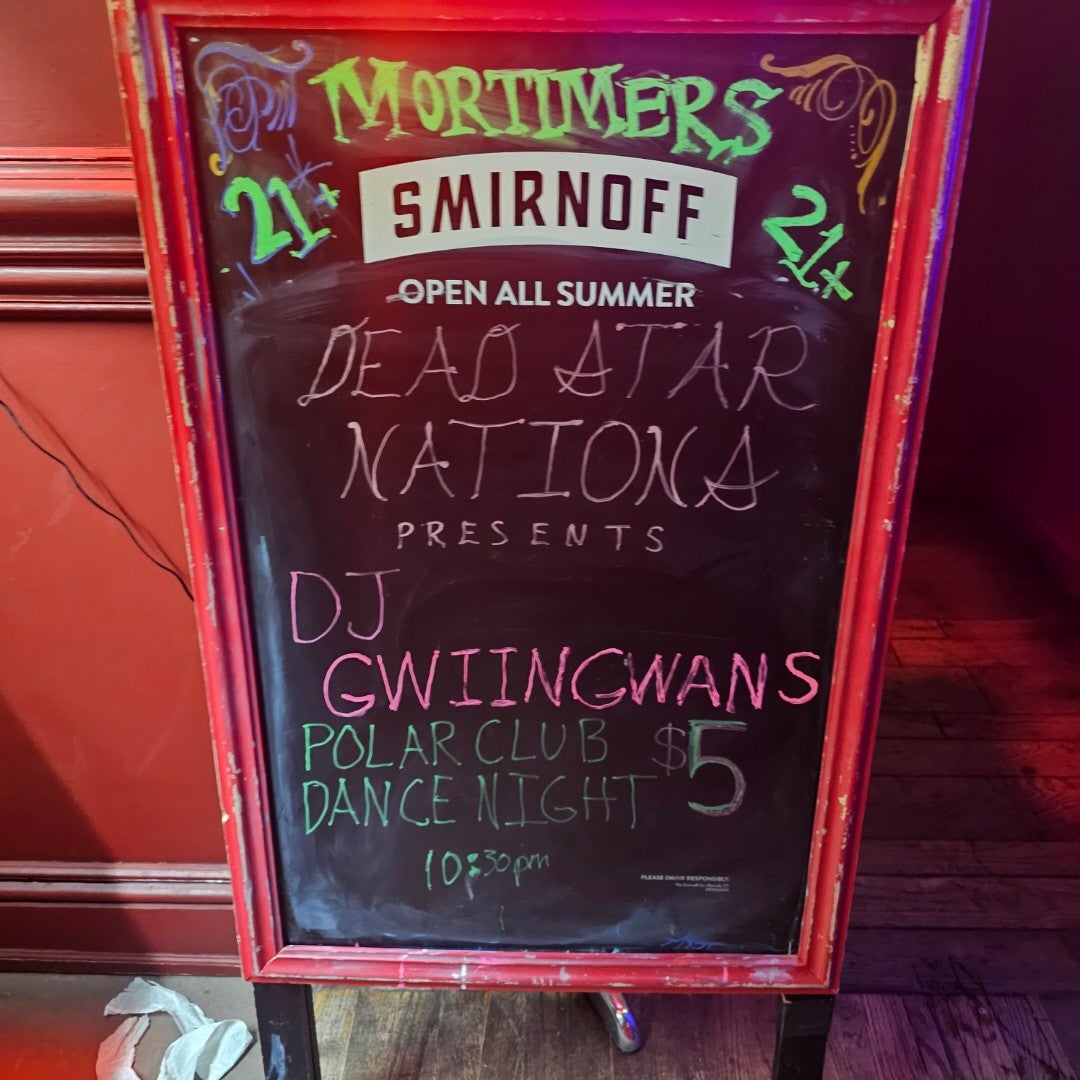 MORTIMERS
21+
SMIRNOFF
21+
OPEN ALL SUMMER
DEAD STAR
NATIONS
PRESENTS
DJ
GWIINGWANS
POLAR CLUB $5
DANCE NIGHT
10:30pm
PLEASE DRINK RESPONSIBLY.